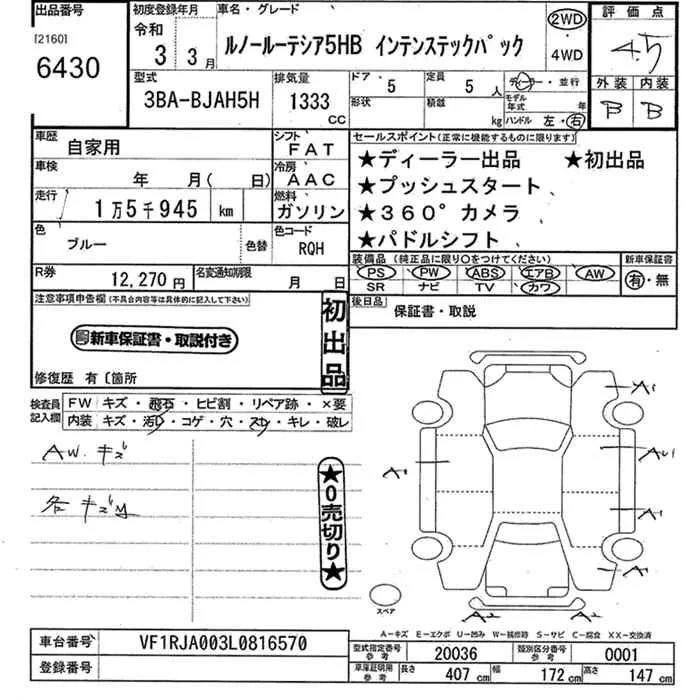 出品番号 初度登録年月 車名・グレード 評価点
[2160] 令和 2WD
6430 3年 3月 ルノールーテシア5HB インテンステックパック ・ 4.5
4WD
型式 排気量 ドア 5 定員 5人 ディーラー・並行 外装 内装
3BA-BJAH5H 1333cc 形状 積載 kg モデル年式 年 B B
ハンドル 左・右
車歴 自家用 シフト FAT セールスポイント(正常に機能するものに限ります)
車検 年 月( 日) 冷房 AAC ★ディーラー出品 ★初出品
走行 1万5千945 km 燃料 ガソリン ★プッシュスタート
★360°カメラ
色 ブルー 色替 色コード RQH ★パドルシフト
R券 12,270円 名変通知期限 月 日 装備品(純正品に限り○をつけてください) 新車保証書
PS PW ABS エアB AW 有・無
SR ナビ TV カワ
注意事項申告欄(不具合内容等は具体的に記入して下さい) 初出品 後日品
保証書・取説
新車保証書・取説付き
修復歴 有〔箇所
検査員記入欄 FW キズ・飛石・ヒビ割・リペア跡・×要
内装 キズ・汚レ・コゲ・穴・スレ・キレ・破レ
AW.キズ
各キズ
★0売切り★
A1
AU1
A1
A1
A1
A2 A2
スペア
A−キズ E−エクボ U−凹み W−補修跡 S−サビ C−腐食 XX−交換済
車台番号 VF1RJA003L0816570 型式指定番号 参考 20036 類別区分番号 参考 0001
登録番号 車庫証明用 参考 長さ 407cm 幅 172cm 高さ 147cm